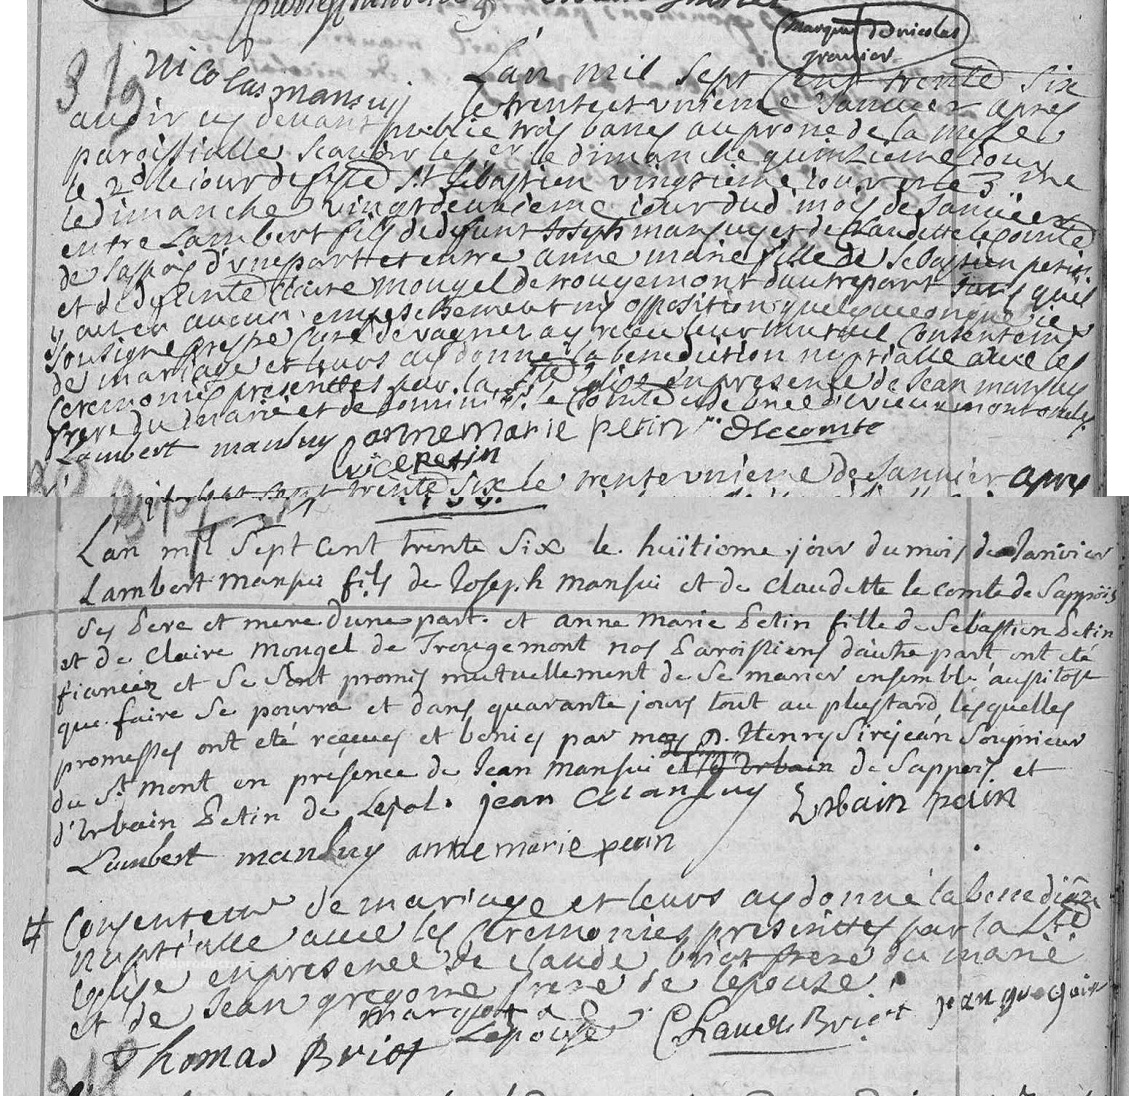 marque de nicolas
grenier
319
nicolas mansuy
L'an mil sept Cent trente six
le trente et unieme Janvier apres
avoir cy devant publié trois bancs au prone de la messe
paroissialle scavoir le 1er le dimanche quinzieme jour
le 2d le jour de feste St Sebastien vingtieme jour et le 3me
le dimanche vingtdeuxieme jour dud mois de Janvier
entre Lambert fils de defunt Joseph mansuy et de Claudette le Comte
de Sapois d'une part et entre anne marie fille de Sebastien petin
et de defunte Claire Mougel de trougemont d'autre part sans quil
y ait eu aucun empeschement ny opposition quelquonque je
soussigné prestre Curé de vagney ay receu leur mutuel Consentemt
de mariage et leurs ay donné la benediction nuptialle avec les
Ceremonies presenttes par la Ste Eglise en presense de Jean mansuy
frere du marié et de le Comte
Lambert mansuy annemarie petin D lecomte
petin
trente six le trente unieme de Janvier apres
Lan mil Sept Cent trente Six le huitieme jour du mois de Janvier
Lambert Mansui fils de Joseph Mansui et de Claudette le comte de Sappois
Ses Pere et mere d'une part. et Anne Marie Petin fille de Sebastien Petin
et de Claire Mougel de Trougemont nos Paroissiens d'autre part ont eté
fiancez et se sont promis mutuellement de se marier ensemble aussitost
que faire se pourra et dans quarante jours tout au plustard, lesquelles
promesses ont eté reçues et benies par moy D. Henry Sirejean Souprieur
du St mont en présence de Jean Mansui et d'Urbain de Sappois, et
d'Urbain Petin de Lepol. jean Mansuy Urbain petin
Lambert mansuy anne marie petin
# Consentemt de mariage et leurs ay donné la benediction
nuptialle avec les Ceremonies presenttes par la Ste
Eglise en presence de Claude briot frere du marié
et de Jean gregoire frere de lepouse
Thomas Briot marque de Lepouse Claude Briot jean gregoire
318